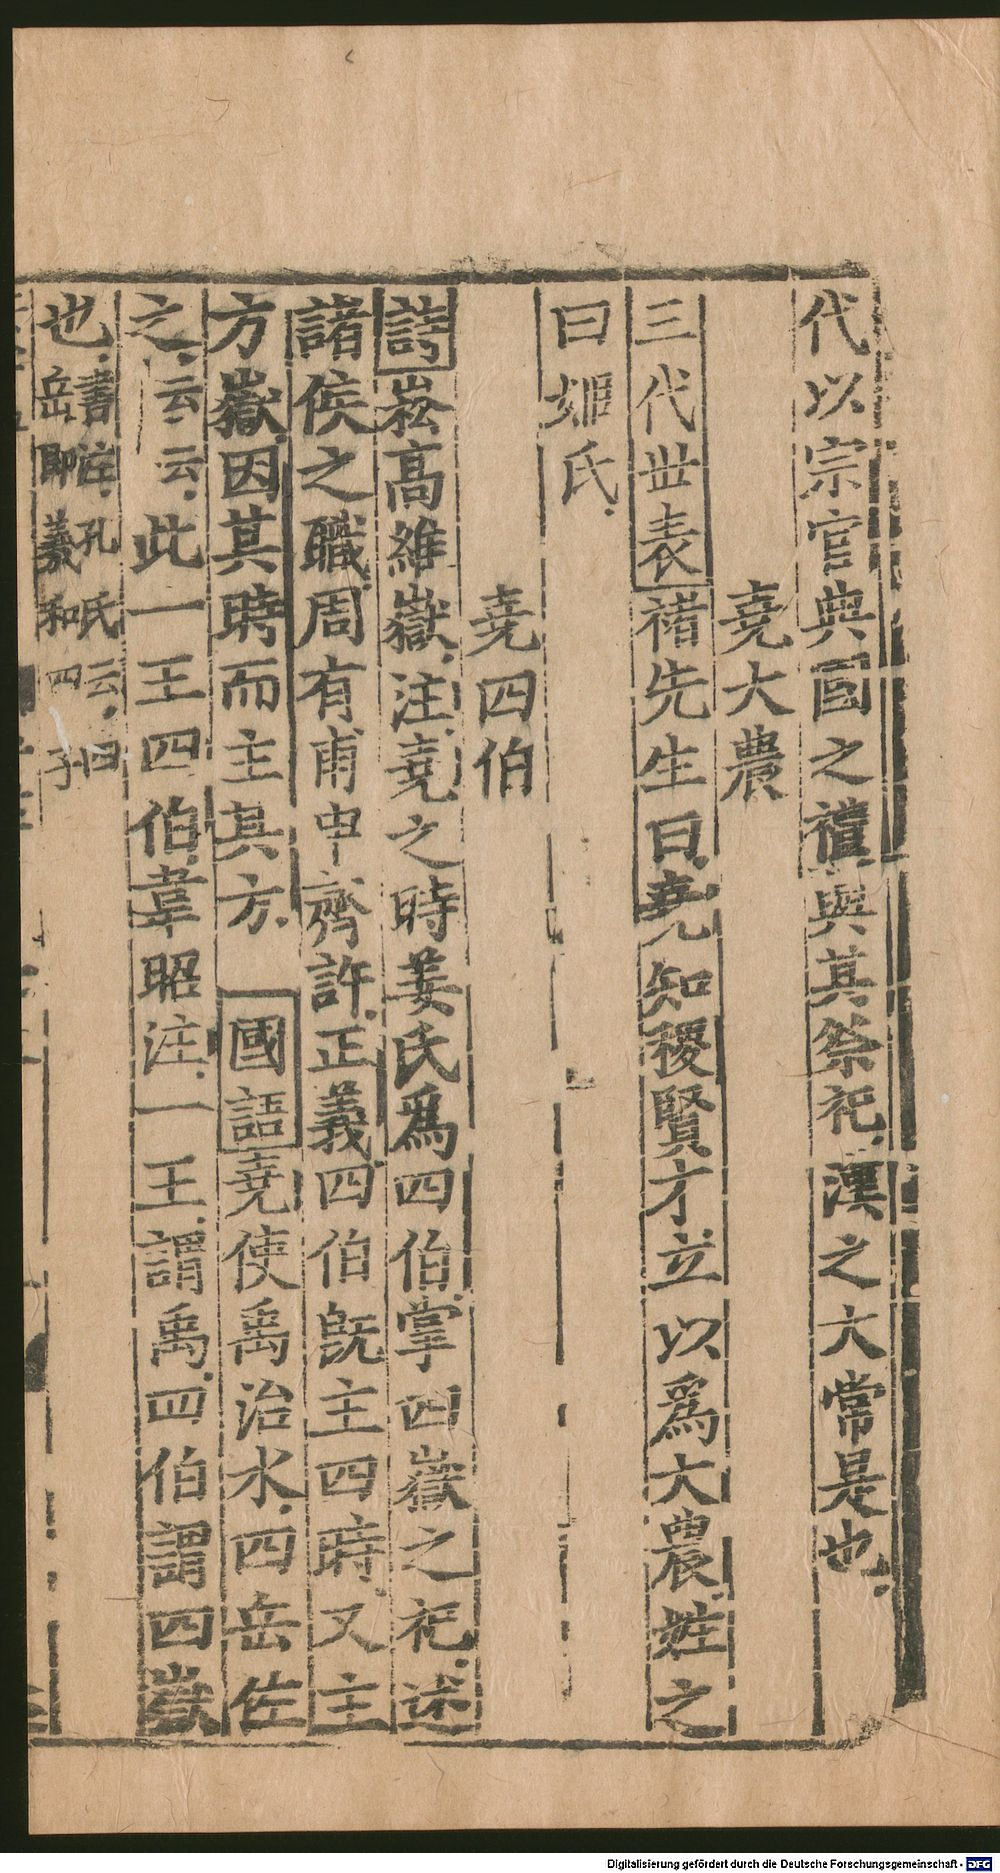 代以宗官典國之禮與其祭祀漢之大常是也
堯大農
三代丗表褚先生曰堯知稷賢才立以爲大農姓之
曰姬氏
堯四伯
詩崧高維嶽注堯之時姜氏爲四伯掌四嶽之祀述
諸侯之職周有甫申齊許正義四伯旣主四時又主
方嶽因其時而主其方 國語堯使禹治水四岳佐
之云云此一王四伯韋昭注一王謂禹四伯謂四嶽
也書注孔氏云四
岳即羲和四子
Digitalisierung gefördert durch die Deutsche Forschungsgemeinschaft - DFG